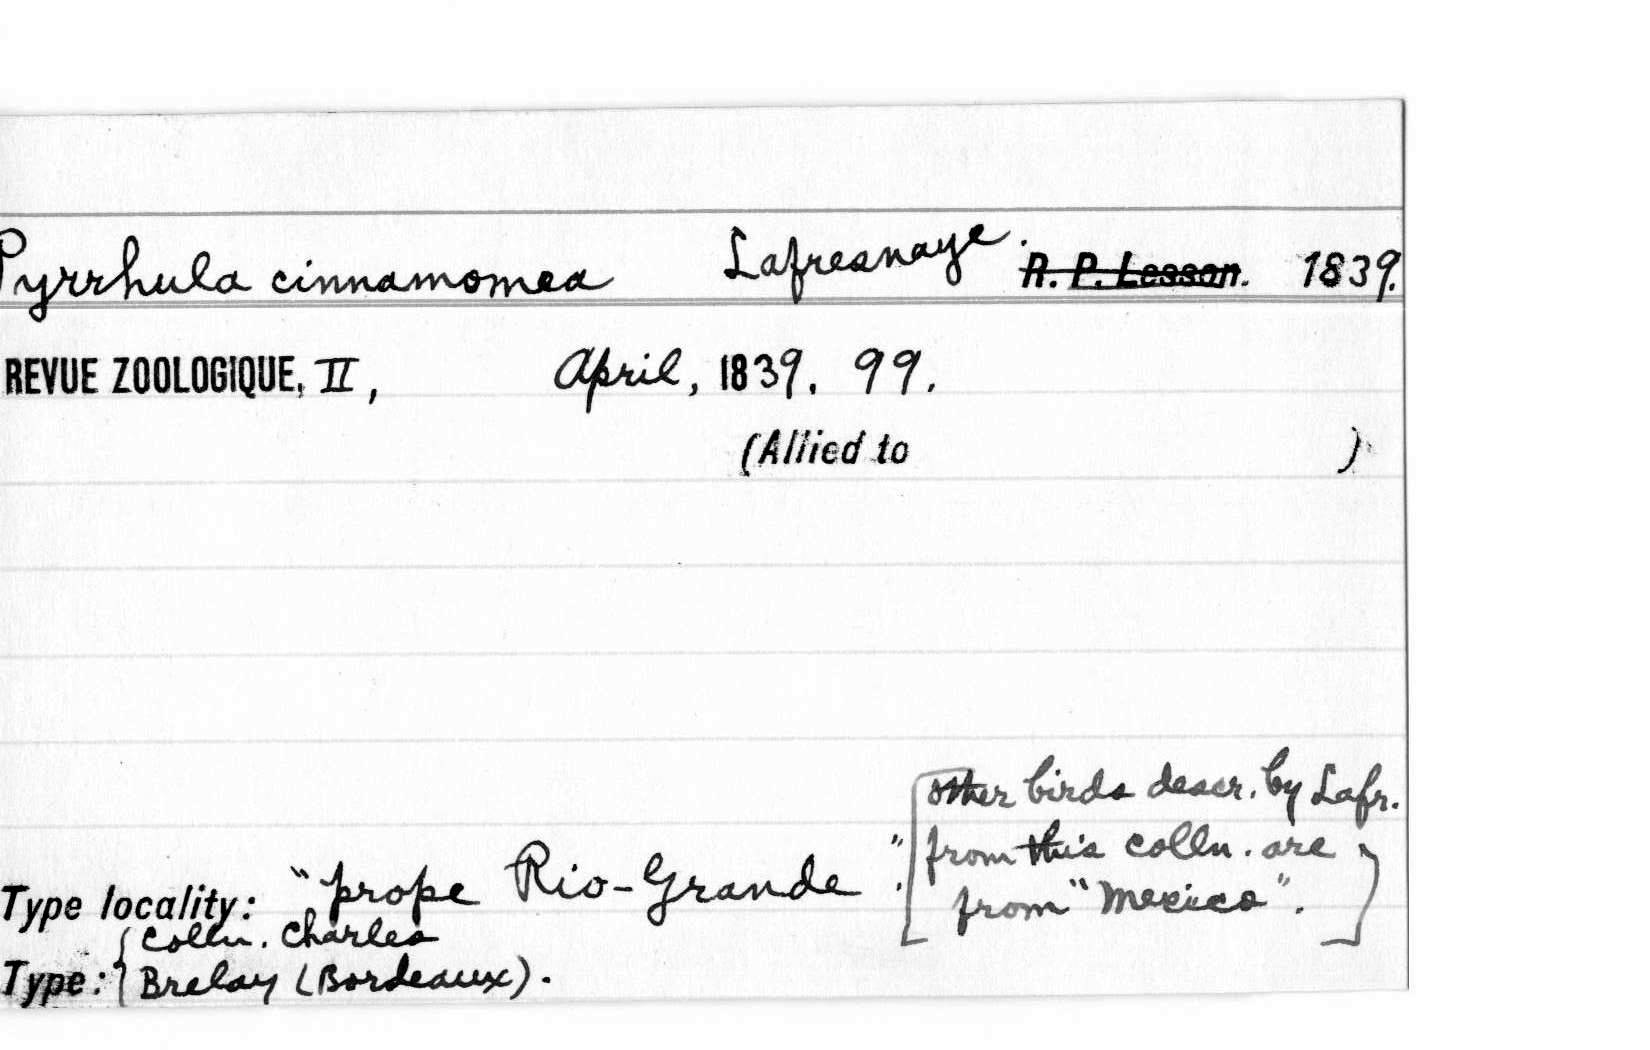 Pyrrhula cinnamomea Lafresnaye. R. P. Lesson. 1839.
REVUE ZOOLOGIQUE, II, April, 1839. 99.
(Allied to )
other birds descr. by Lafr.
from this colln. are
from "Mexico".
Type locality: "prope Rio-Grande".
Colln. Charles
Type: Brelay (Bordeaux).